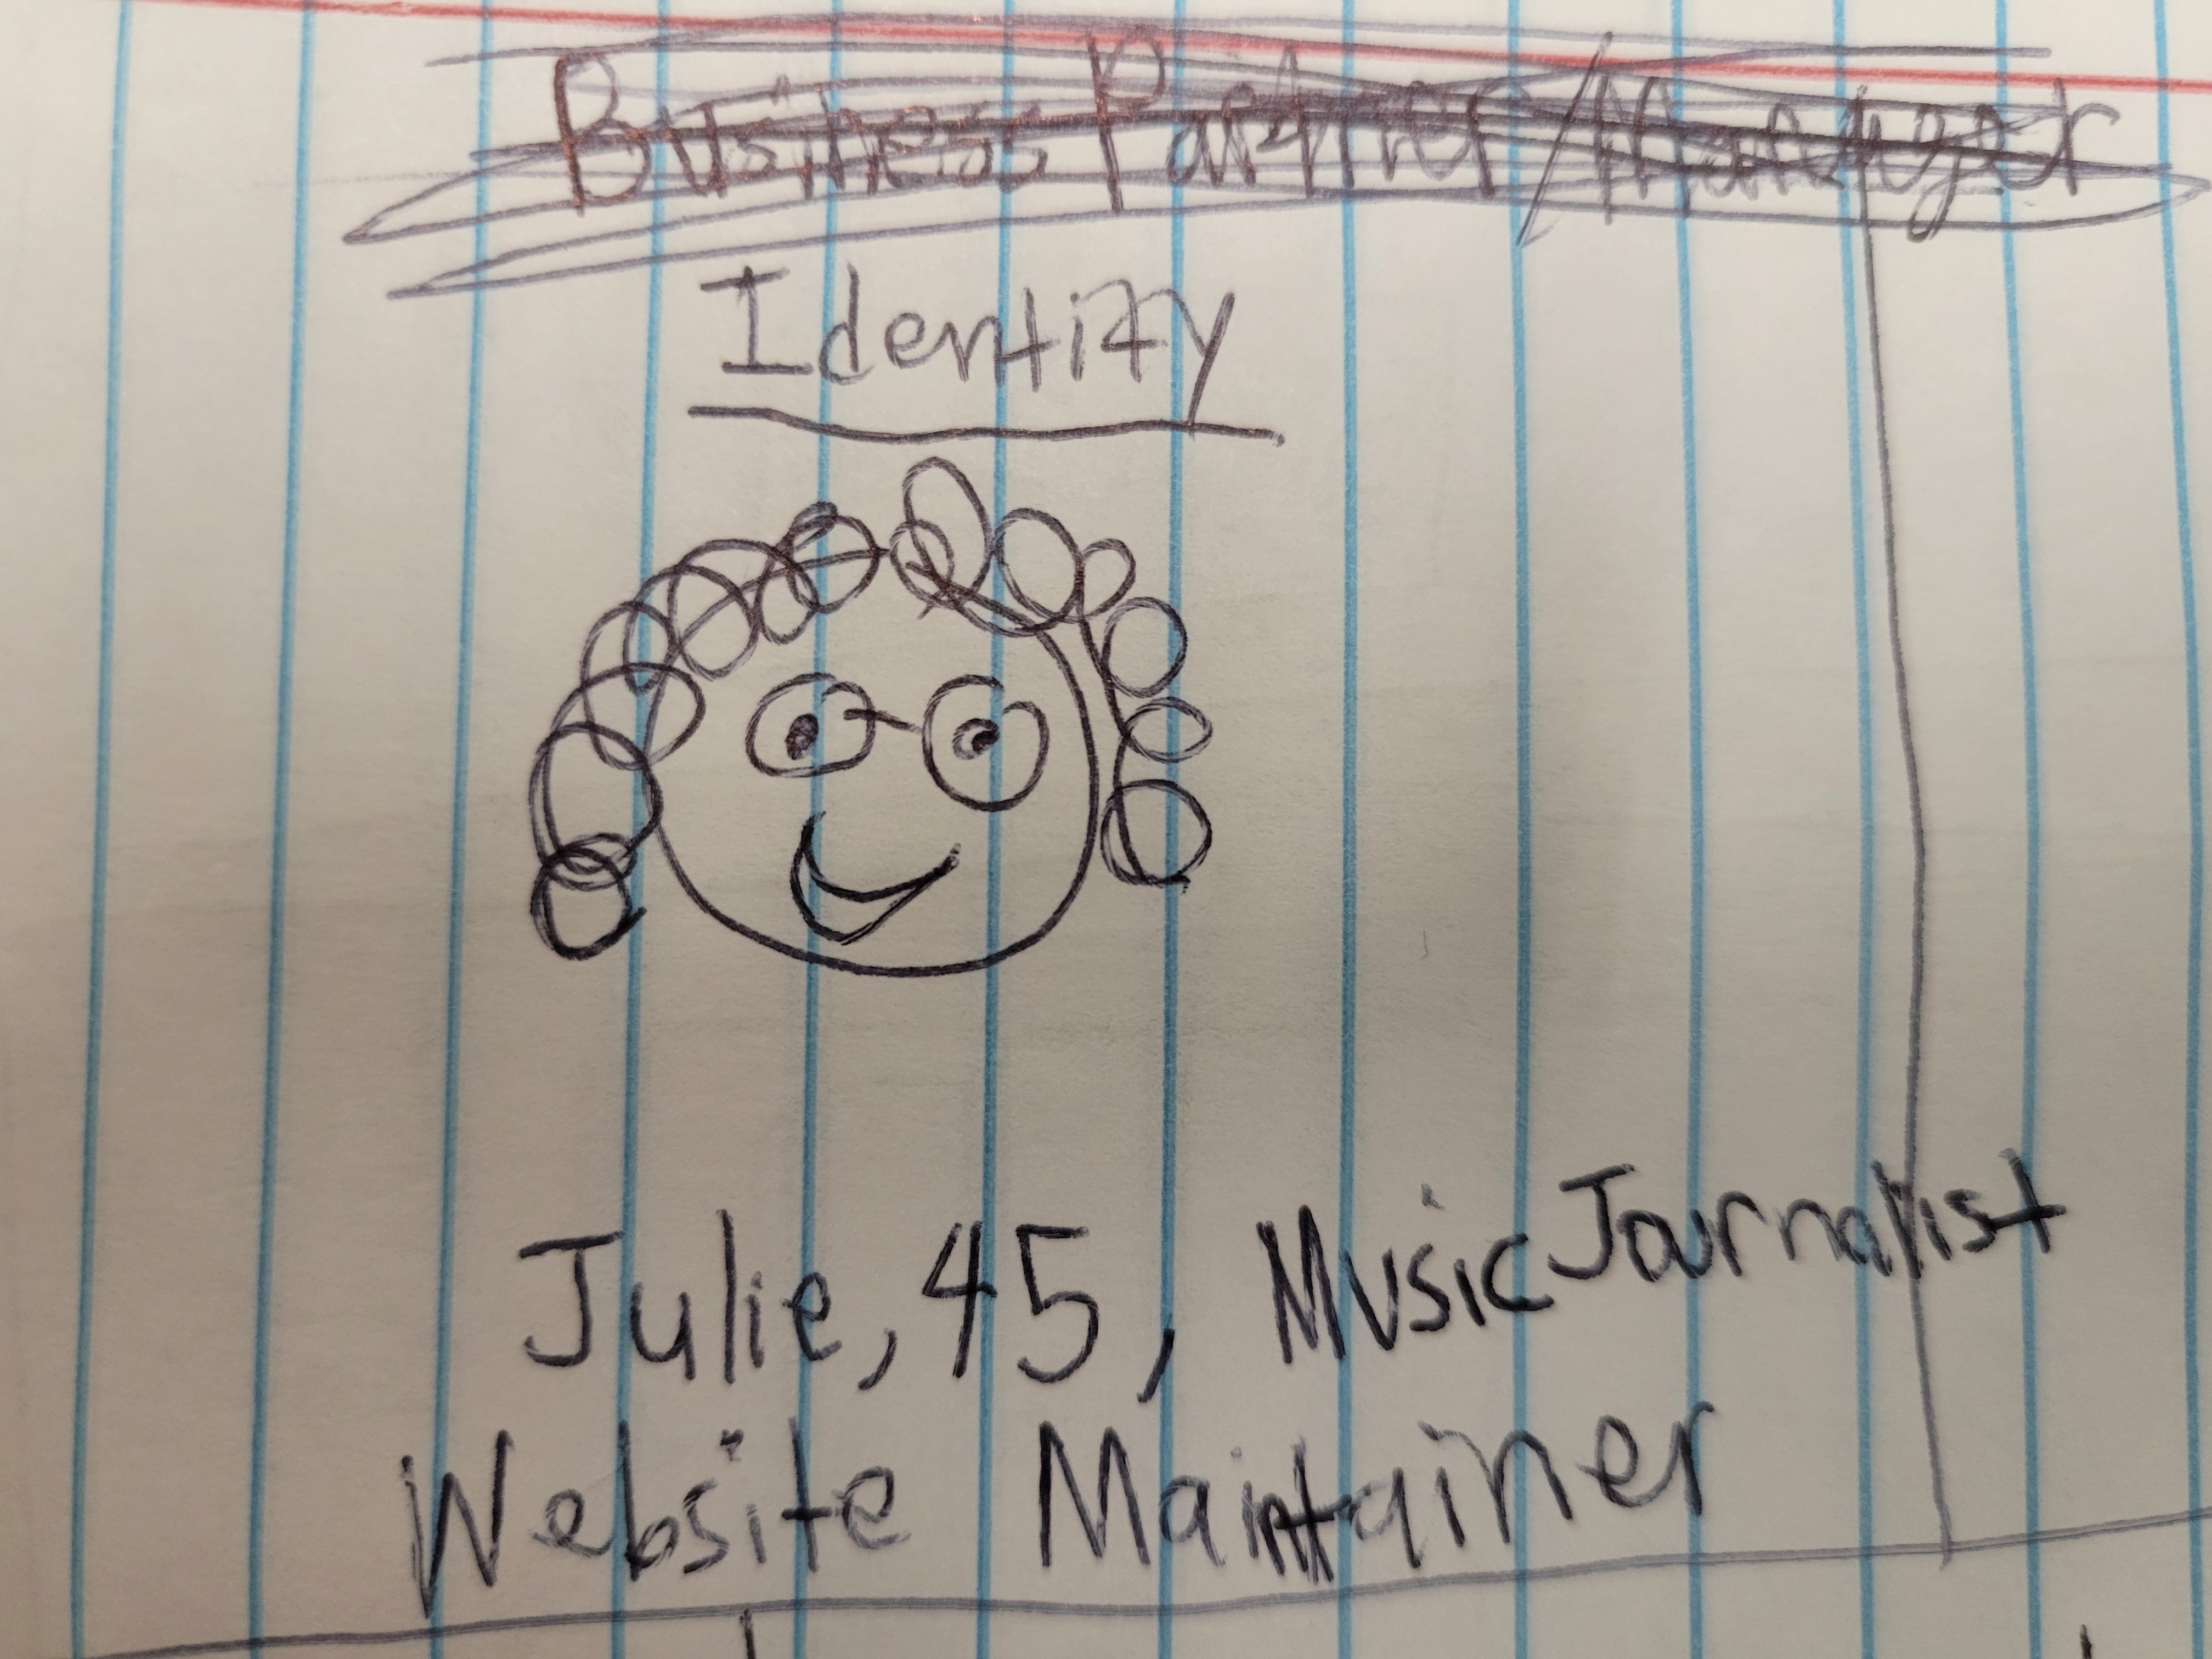 Business Partner/Manager
Identity
Julie, 45, Music Journalist
Website Maintainer